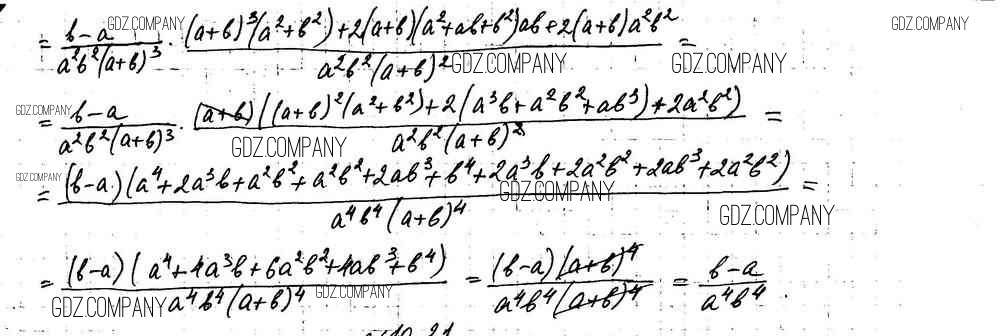 GDZ.COMPANY GDZ.COMPANY
= (b-a)/(a²b²(a+b)³) · ((a+b)³(a²+b²)+2(a+b)(a²+ab+b²)ab+2(a+b)a²b²)/(a²b²(a+b)²) =
GDZ.COMPANY GDZ.COMPANY
GDZ.COMPANY
= (b-a)/(a²b²(a+b)³) · ((a+b)((a+b)²(a²+b²)+2(a³b+a²b²+ab³)+2a²b²))/(a²b²(a+b)²) =
GDZ.COMPANY
GDZ.COMPANY
= ((b-a)(a⁴+2a³b+a²b²+a²b²+2ab³+b⁴+2a³b+2a²b²+2ab³+2a²b²))/(a⁴b⁴(a+b)⁴) =
GDZ.COMPANY
GDZ.COMPANY
= ((b-a)(a⁴+4a³b+6a²b²+4ab³+b⁴))/(a⁴b⁴(a+b)⁴) = ((b-a)(a+b)⁴)/(a⁴b⁴(a+b)⁴) = (b-a)/(a⁴b⁴).
GDZ.COMPANY GDZ.COMPANY